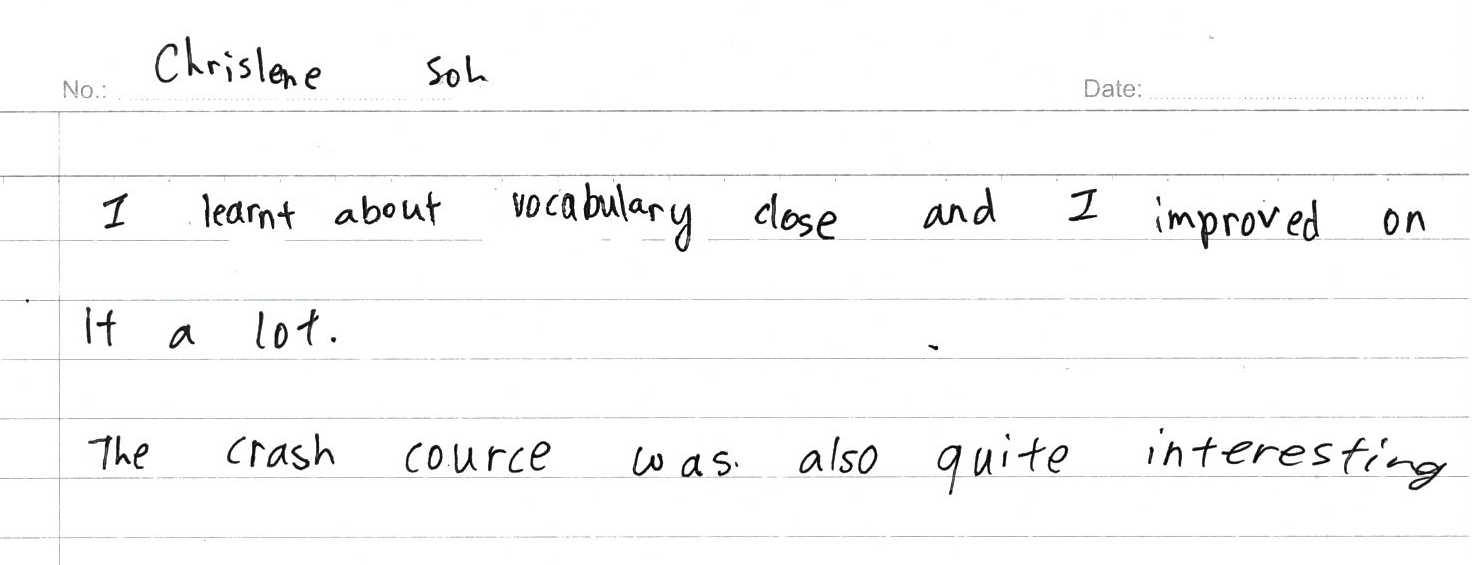 No.: Chrislene Soh Date:
I learnt about vocabulary close and I improved on
It a lot.
The crash cource was. also quite interesting